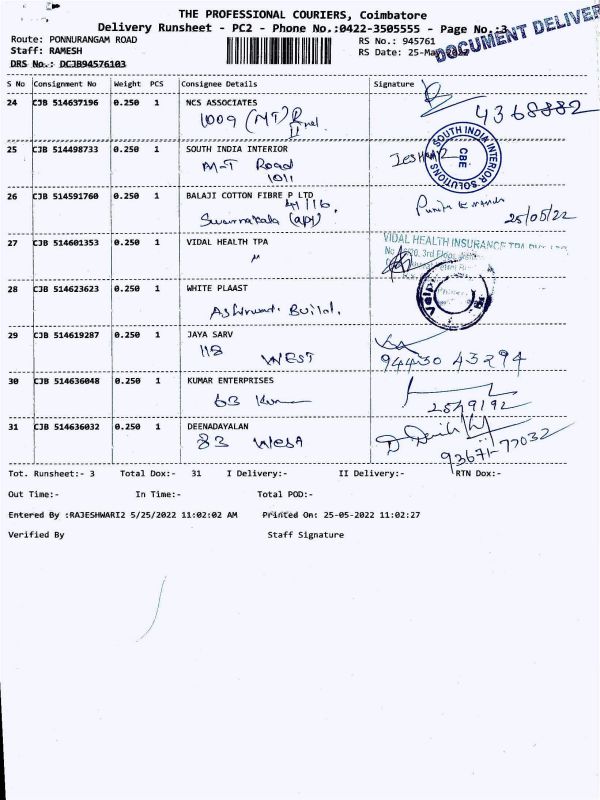 THE PROFESSIONAL COURIERS, Coimbatore
Delivery Runsheet - PC2 - Phone No.:0422-3505555 - Page No.:3
DOCUMENT DELIVER
Route: PONNURANGAM ROAD
RS No.: 945761
Staff: RAMESH
RS Date: 25-May-2022
DRS No.: DCJB94576103
S No Consignment No Weight PCS Consignee Details Signature
24 CJB 514637196 0.250 1 NCS ASSOCIATES
1009 (MT) R
4368882
25 CJB 514498733 0.250 1 SOUTH INDIA INTERIOR
M-T Road
1011
SOUTH INDIA INTERIOR SOLUTIONS
CBE
26 CJB 514591760 0.250 1 BALAJI COTTON FIBRE P LTD
41/16,
25/05/22
27 CJB 514601353 0.250 1 VIDAL HEALTH TPA
VIDAL HEALTH INSURANCE TPA
3rd Floor
28 CJB 514623623 0.250 1 WHITE PLAAST
29 CJB 514619287 0.250 1 JAYA SARV
118 WEST
94430 43294
30 CJB 514636048 0.250 1 KUMAR ENTERPRISES
63
2549192
31 CJB 514636032 0.250 1 DEENADAYALAN
83 West
93671-77032
Tot. Runsheet:- 3 Total Dox:- 31 I Delivery:- II Delivery:- RTN Dox:-
Out Time:- In Time:- Total POD:-
Entered By :RAJESHWARI2 5/25/2022 11:02:02 AM Printed On: 25-05-2022 11:02:27
Verified By Staff Signature